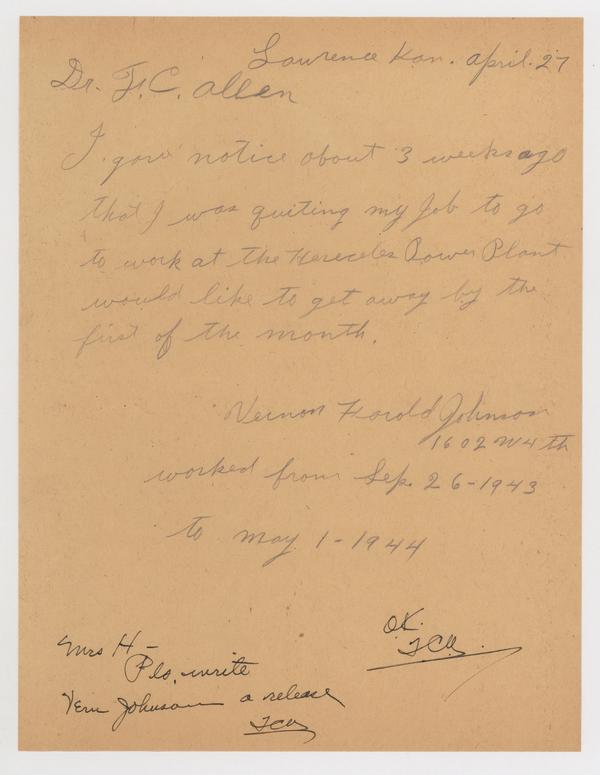 Lawrence Kan. April. 27
Dr. F. C. Allen
I gave notice about 3 weeks ago
that I was quiting my Job to go
to work at the Hereceles Power Plant
would like to get away by the
first of the month.
Vernon Harold Johnson
1602 W 4 th
worked from Sep. 26-1943
to may 1-1944
O.K.
FCA.
Mrs H-
Pls. write
Vern Johnson a release
FCA